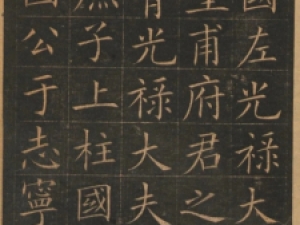 國左光祿大
皇甫府君之
青光祿大夫
庶子上柱國
國公于志寧